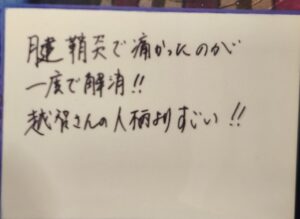 腱鞘炎で痛かったのが
一度で解消!!
越智さんの人柄よりすごい!!